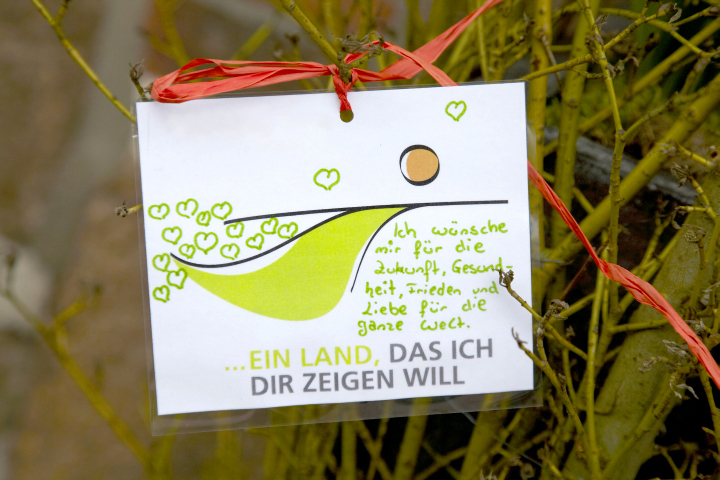 Ich wünsche
mir für die
Zukunft, Gesund-
heit, Frieden und
Liebe für die
ganze Welt.
...EIN LAND, DAS ICH
DIR ZEIGEN WILL